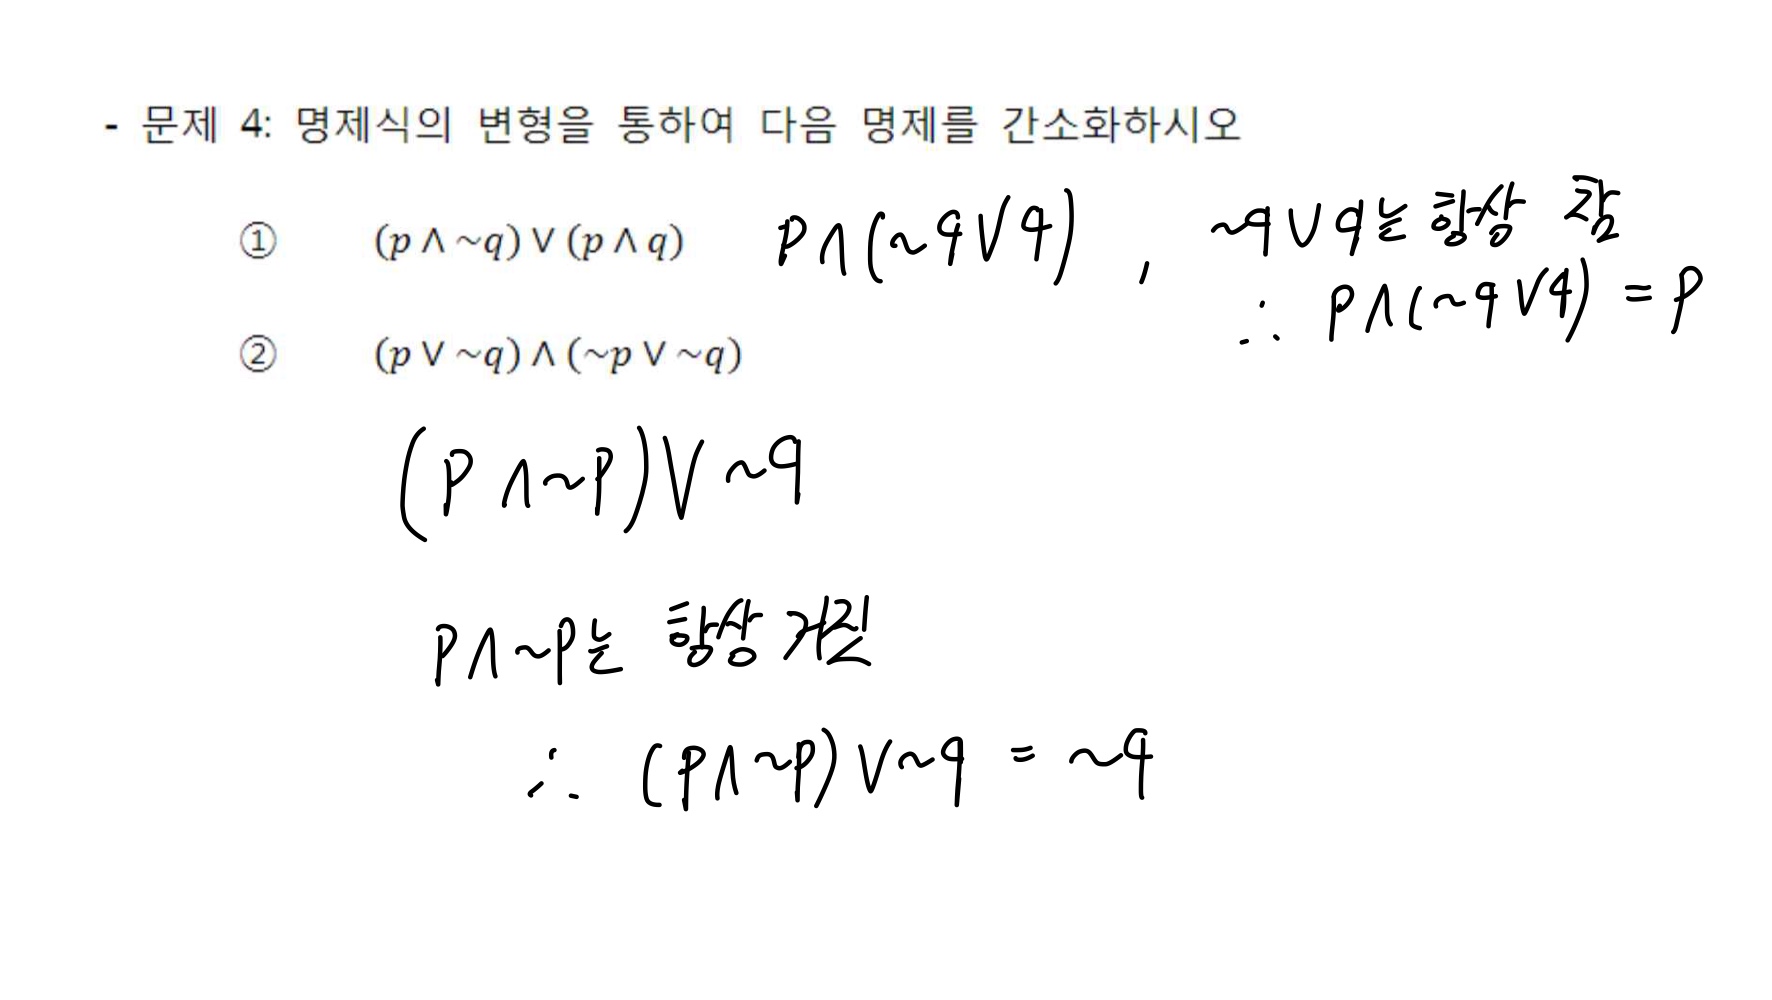 - 문제 4: 명제식의 변형을 통하여 다음 명제를 간소화하시오
① (p ∧ ~q) ∨ (p ∧ q) P∧(~q∨q) , ~q∨q는 항상 참
∴ P∧(~q∨q) = P
② (p ∨ ~q) ∧ (~p ∨ ~q)
(P∧~P)∨~q
P∧~P는 항상 거짓
∴ (P∧~P)∨~q = ~q